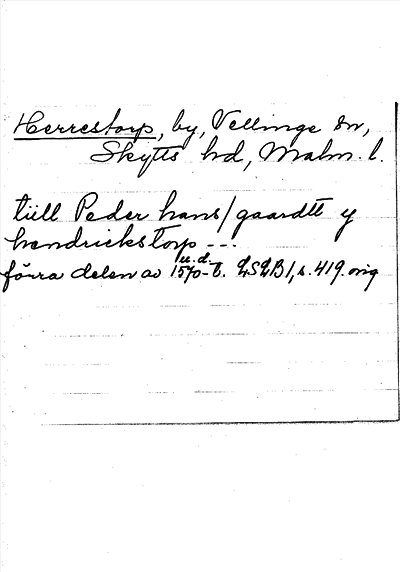 Herrestorp, by, Vellinge sn,
Skytts hd, Malm. l.
tiill Peder hans/gaardtt y
hendrickstorp ---
u. d.
förra delen av 1570-t. LSLB 1, s. 419. orig